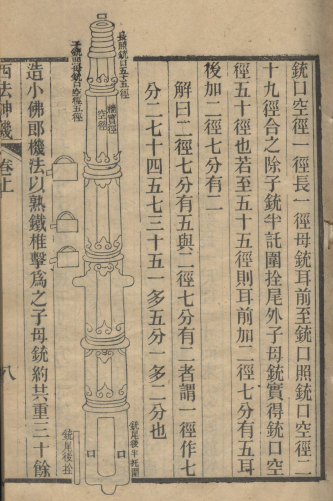 銃口空徑一徑長一徑母銃耳前至銃口照銃口空徑二
十九徑合之除子銃半託圍拴尾外子母銃實得銃口空
徑五十徑也若至五十五徑則耳前加二徑七分有五耳
後加二徑七分有二
解曰二徑七分有五與二徑七分有二者謂一徑作七
分二七十四五七三十五一多五分一多二分也
長照銃口五十五徑
子銃照母銃口空徑五徑
空徑
銃尾後半托圍
銃尾後拴
口
口
造小佛郎機法以熟鐵椎擊爲之子母銃約共重三十餘
西法神機
卷上
八